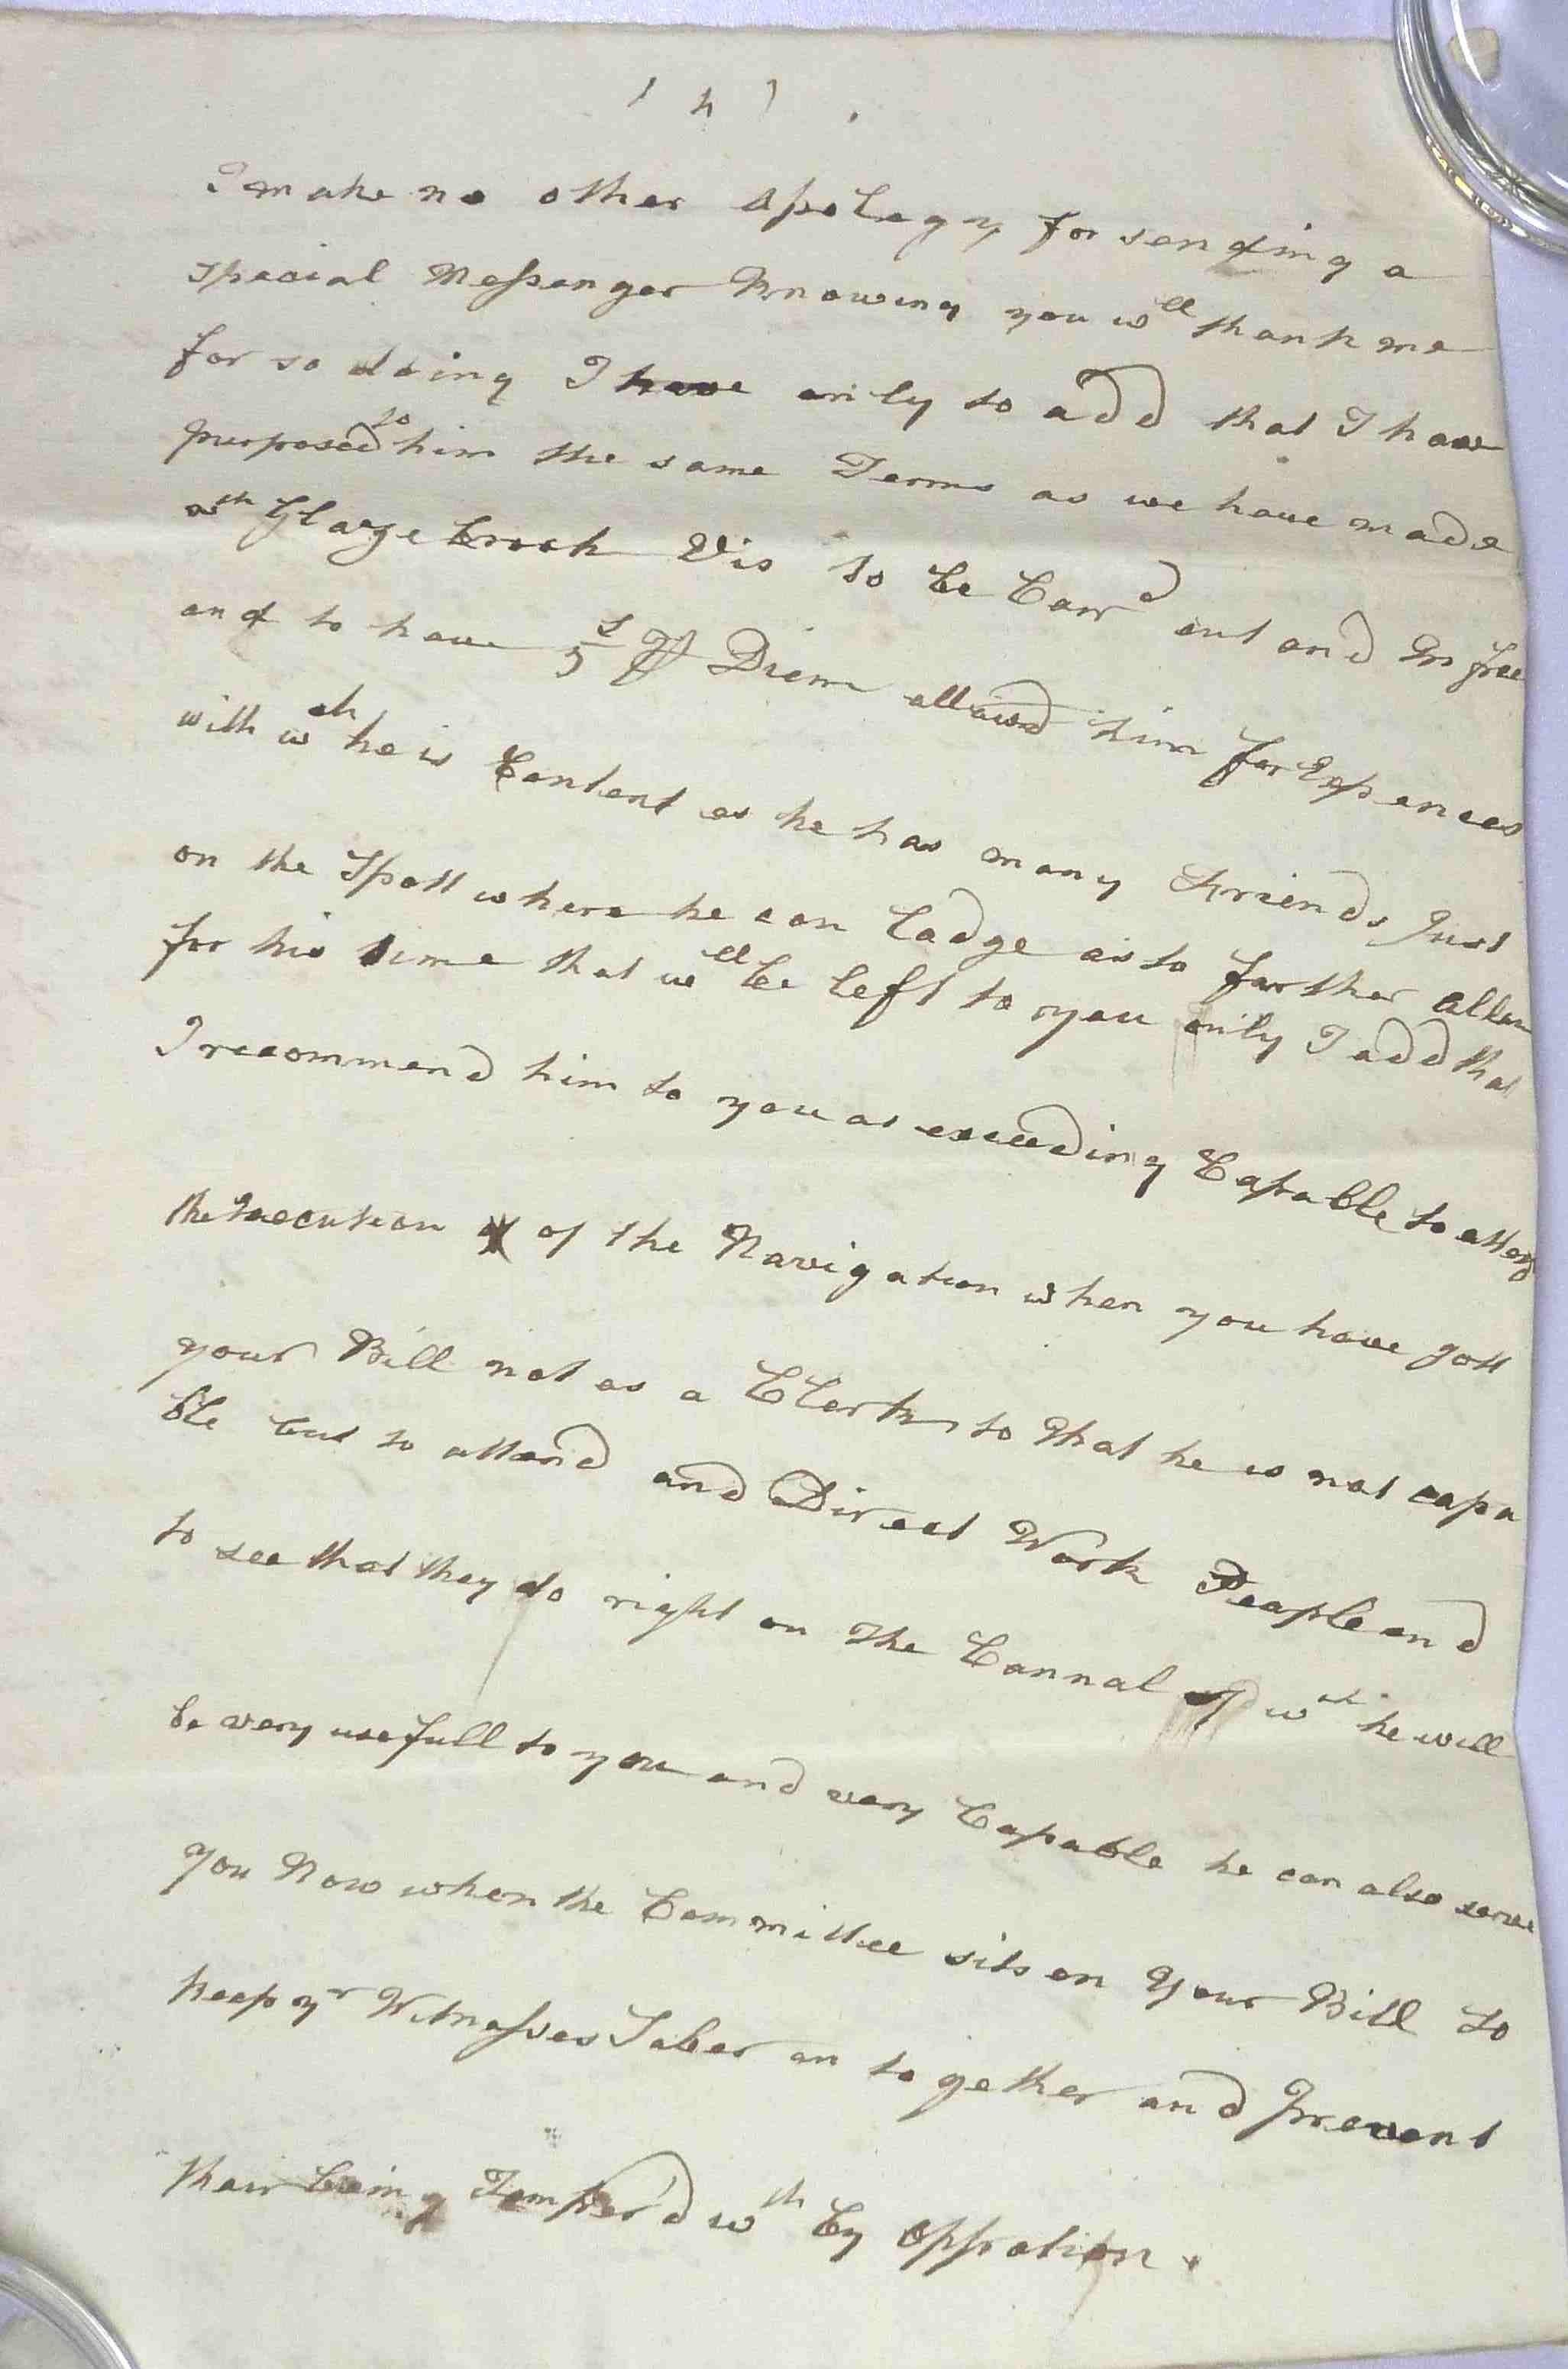 ( 4 )
I make no other Apology for sending a
special Messenger Knowing you w^ll thank me
for so doing I have only to add that I have
purposed ^to him the same Terms as we have made
w^th Glazebrook Viz to be Carr^d out and In free
and to have 5^s ⅌ Diem allowd him for Expences
with w^ch he is Content as he has many Friends Just
on the Spott where he can Lodge as to farther Allow
for his time that w^ll be left to you only I add that
I recommend him to you as exceeding Capable to attend
the Execution of the Navigation when you have gott
your Bill not as a Clerk to that he is not capa
ble but to attend and Direct Work People and
to see that they do right on the Cannal w^ch he will
be very usefull to you and very Capable he can also serve
you Now when the Committee sits on your Bill to
keep y^r Witnesses Sober on together and Prevent
their being Tamper'd w^th by Oppsation.